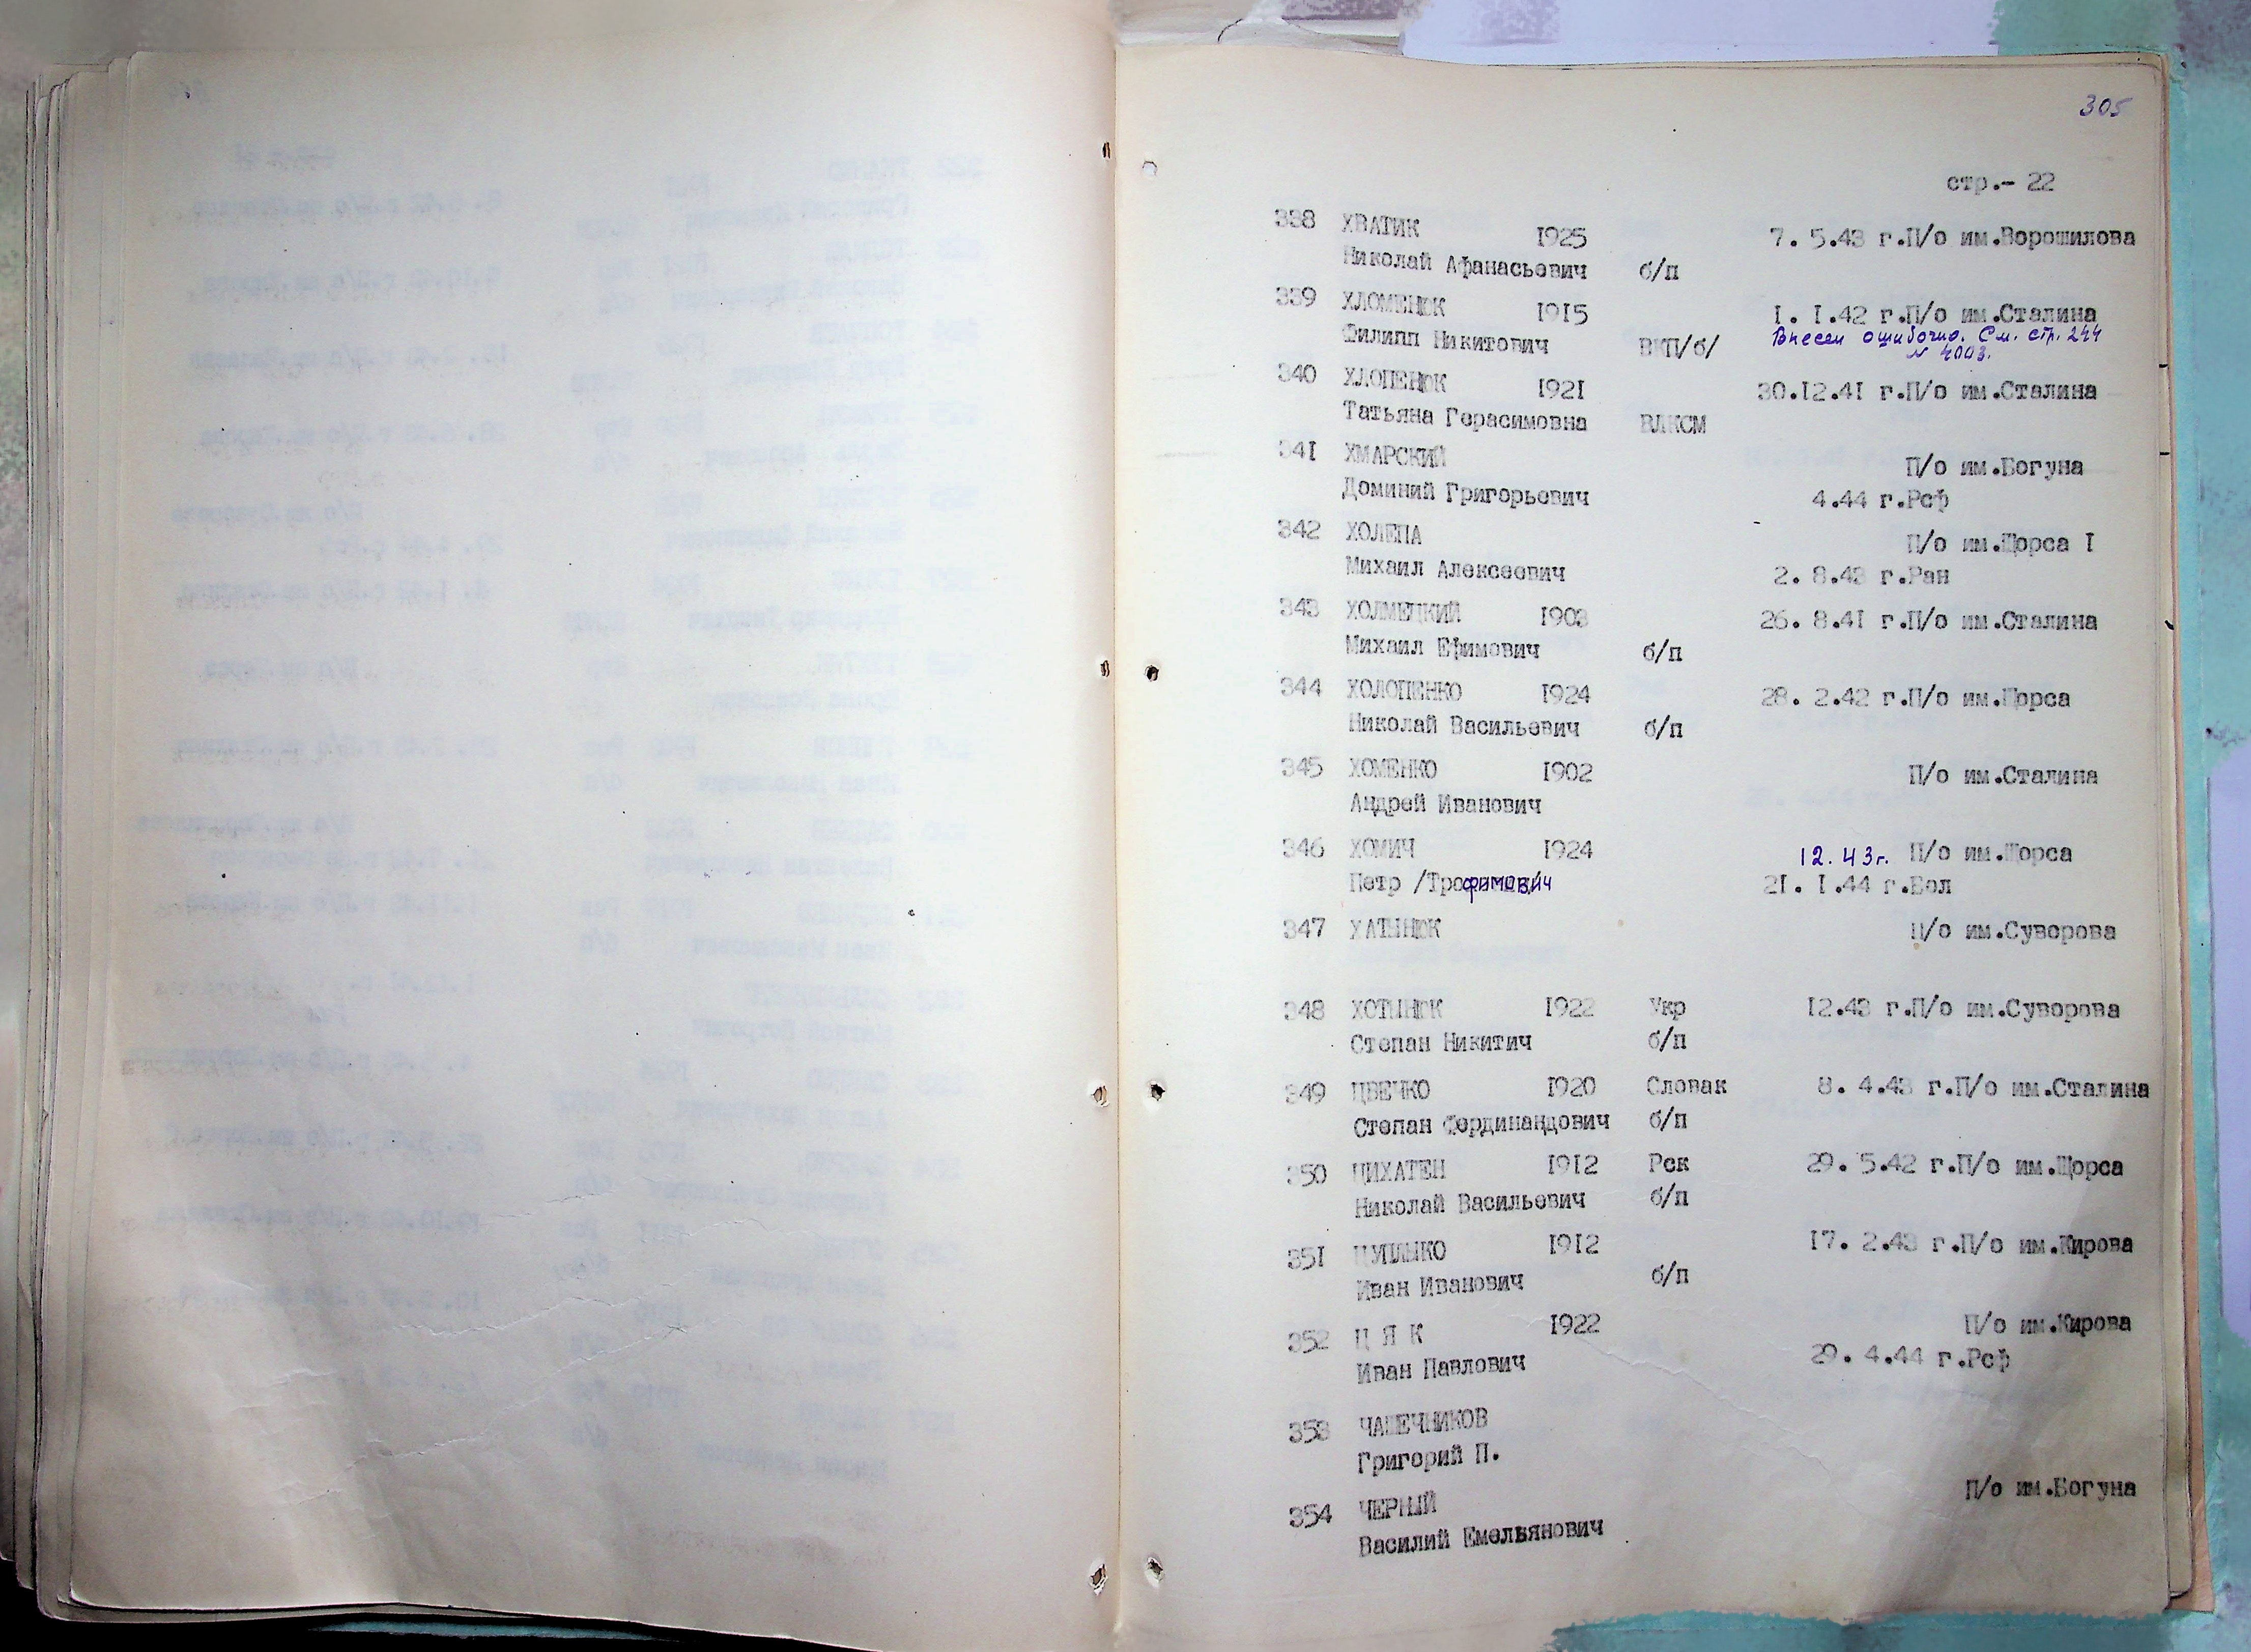 305
стр.- 22
338 ХВАТИК 1925 7. 5.43 г.П/о им.Ворошилова
Николай Афанасьевич б/п
339 ХЛОМЕНЮК 1915 I. I.42 г.П/о им.Сталина
Филипп Никитович ВКП/б/ Внесен ошибочно. См. стр. 244
№ 4003.
340 ХЛОПЕНЮК 1921 30.12.41 г.П/о им.Сталина
Татьяна Герасимовна ВЛКСМ
341 ХМАРСКИЙ П/о им.Богуна
Доминий Григорьевич 4.44 г.Рсф
342 ХОЛЕПА П/о им.Щорса I
Михаил Алексеевич 2. 8.43 г.Ран
343 ХОЛМЕЦКИЙ 1903 26. 8.41 г.П/о им.Сталина
Михаил Ефимович б/п
344 ХОЛОПЕНКО 1924 28. 2.42 г.П/о им.Щорса
Николай Васильевич б/п
345 ХОМЕНКО 1902 П/о им.Сталина
Андрей Иванович
346 ХОМИЧ 1924 12.43г. П/о им.Щорса
Петр /Трофимович 21. I.44 г.Бол
347 ХАТЫНЮК П/о им.Суворова
348 ХОТЫНЮК 1922 Укр 12.43 г.П/о им.Суворова
Степан Никитич б/п
349 ЦВЕЧКО 1920 Словак 8. 4.43 г.П/о им.Сталина
Степан Фердинандович б/п
350 ЦИХАТЕН 1912 Рск 29. 5.42 г.П/о им.Щорса
Николай Васильевич б/п
351 ЦУПЛЫКО 1912 17. 2.43 г.П/о им.Кирова
Иван Иванович б/п
352 Ц Я К 1922 П/о им.Кирова
Иван Павлович 29. 4.44 г.Рсф
353 ЧАШЕЧНИКОВ
Григорий П.
П/о им.Богуна
354 ЧЕРНЫЙ
Василий Емельянович